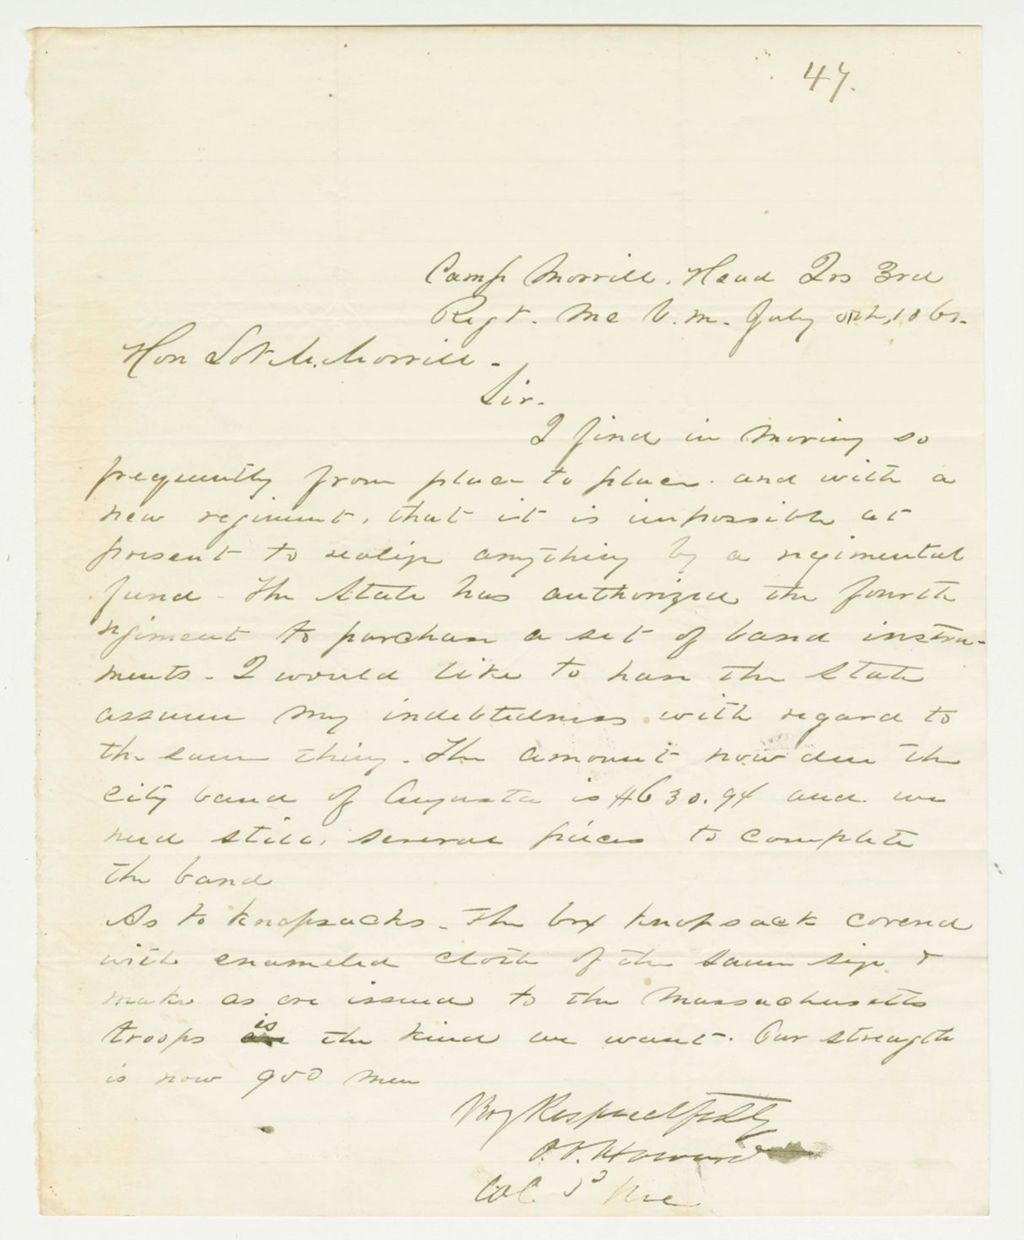 47.
Camp Morrill. Head Qrs 3rd
Regt. Me V. M. July 8th, 1861.
Hon Lot M. Morrill -
Sir.
I find in moving so
frequently from place to place. and with a
new regiment, that it is impossible at
present to realize anything by a regimental
fund - The State has authorized the fourth
regiment to purchase a set of band instru-
ments - I would like to have the State
assume my indebtedness with regard to
the same thing. The amount now due the
city band of Augusta is $630.94 and we
need still, several pieces to complete
the band
As to knapsacks - The box knapsack covered
with enameled cloth of the same size &
make as are issued to the Massachusetts
troops is the kind we want. Our strength
is now 900 men
Very Respectfully
O. O. Howard
Col. 3d Me